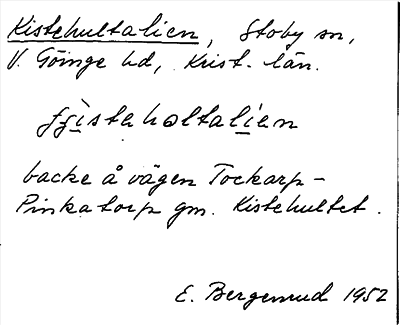 Kistehultalien, Stoby sn,
V. Göinge hd, Krist. län.
backe å vägen Tockarp-
Pinkatorp gm. Kistehultet.
E. Bergenrud 1952